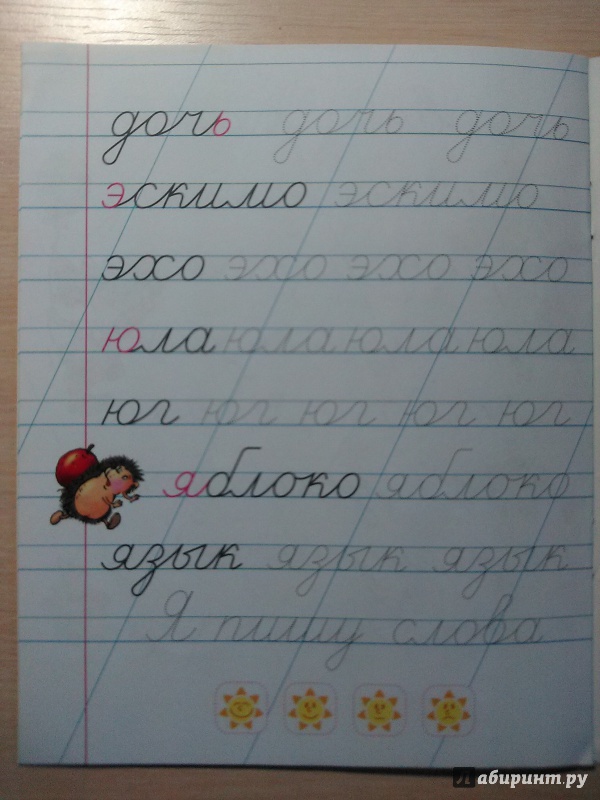 дочь дочь дочь
эскимо эскимо
эхо эхо эхо эхо
юла юла юла юла
юг юг юг юг юг
яблоко яблоко
язык язык язык
Я пишу слова
Лабиринт.ру